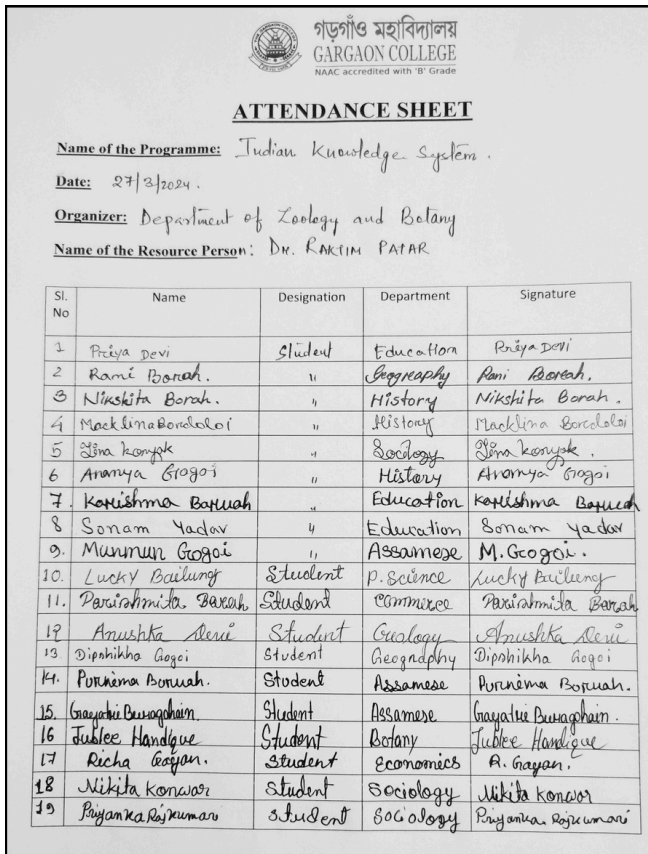 গড়গাঁও মহাবিদ্যালয়
GARGAON COLLEGE
NAAC accredited with 'B' Grade
ATTENDANCE SHEET
Name of the Programme: Indian Knowledge System.
Date: 27/3/2024.
Organizer: Department of Zoology and Botany
Name of the Resource Person: Dr. RAKTIM PATAR
Sl. No Name Designation Department Signature
1 Priya Devi Student Education Priya Devi
2 Rani Borah. " Geography Rani Borah.
3 Nikshita Borah. " History Nikshita Borah.
4 Macklina Bordoloi " History Macklina Bordoloi
5 Tina Konyak " Sociology Tina Konyak.
6 Ananya Gogoi " History Ananya Gogoi
7. Karishma Baruah " Education Karishma Baruah
8 Sonam Yadav " Education Sonam Yadav
9. Munmun Gogoi " Assamese M. Gogoi.
10. Lucky Bailung Student P. Science Lucky Bailung
11. Parishmita Borah Student Commerce Parishmita Borah
12 Anushka Devi Student Geology Anushka Devi
13. Dipshikha Gogoi Student Geography Dipshikha Gogoi
14. Purnema Boruah. Student Assamese Purnema Boruah.
15. Gayatrie Buragohain. Student Assamese Gayatrie Buragohain.
16 Jublee Handique Student Botany Jublee Handique
17 Richa Gayan. Student Economics R. Gayan.
18 Nikita Konwar Student Sociology Nikita Konwar
19 Priyanka Rajkumari Student Sociology Priyanka Rajkumari